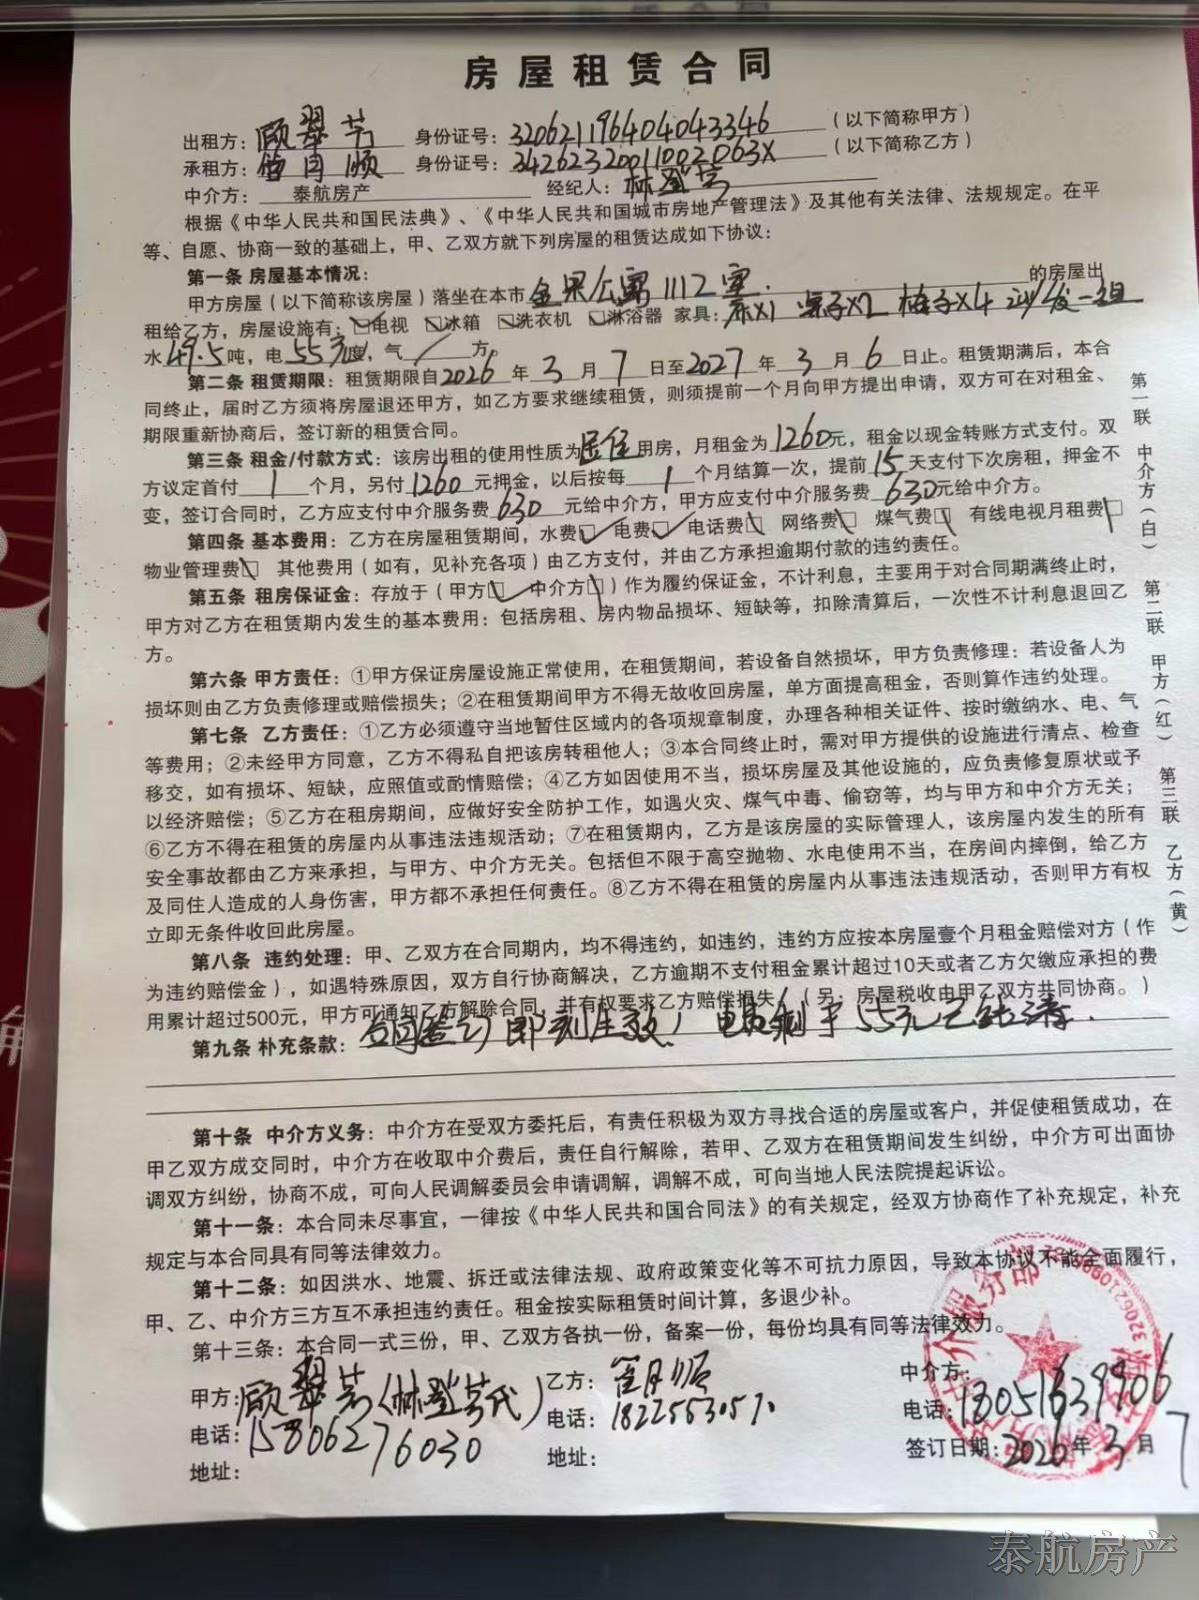 房屋租赁合同
出租方：顾翠芳 身份证号：320621196404043346 （以下简称甲方）
承租方：管月顺 身份证号：34262320011002063X （以下简称乙方）
中介方：泰航房产 经纪人：林登芳
根据《中华人民共和国民法典》、《中华人民共和国城市房地产管理法》及其他有关法律、法规规定。在平
等、自愿、协商一致的基础上，甲、乙双方就下列房屋的租赁达成如下协议：
第一条 房屋基本情况：
甲方房屋（以下简称该房屋）落坐在本市金果公寓1112室.的房屋出
租给乙方，房屋设施有：☑电视 ☑冰箱 ☑洗衣机 ☑淋浴器 家具：床X1 桌子X2 椅子X4 沙发一组
水49.5吨，电55元度，气/方。
第二条 租赁期限：租赁期限自2026年3月7日至2027年3月6日止。租赁期满后，本合
同终止，届时乙方须将房屋退还甲方，如乙方要求继续租赁，则须提前一个月向甲方提出申请，双方可在对租金、
期限重新协商后，签订新的租赁合同。
第三条 租金/付款方式：该房出租的使用性质为居住用房，月租金为1260元，租金以现金转账方式支付。双
方议定首付1个月，另付1260元押金，以后按每1个月结算一次，提前15天支付下次房租，押金不
变，签订合同时，乙方应支付中介服务费630元给中介方，甲方应支付中介服务费630元给中介方。
第四条 基本费用：乙方在房屋租赁期间，水费☑ 电费☑ 电话费□ 网络费□ 煤气费□ 有线电视月租费□
物业管理费□ 其他费用（如有，见补充各项）由乙方支付，并由乙方承担逾期付款的违约责任。
第五条 租房保证金：存放于（甲方☑ 中介方□）作为履约保证金，不计利息，主要用于对合同期满终止时，
甲方对乙方在租赁期内发生的基本费用：包括房租、房内物品损坏、短缺等，扣除清算后，一次性不计利息退回乙
方。
第六条 甲方责任：①甲方保证房屋设施正常使用，在租赁期间，若设备自然损坏，甲方负责修理：若设备人为
损坏则由乙方负责修理或赔偿损失；②在租赁期间甲方不得无故收回房屋，单方面提高租金，否则算作违约处理。
第七条 乙方责任：①乙方必须遵守当地暂住区域内的各项规章制度，办理各种相关证件、按时缴纳水、电、气
等费用；②未经甲方同意，乙方不得私自把该房转租他人；③本合同终止时，需对甲方提供的设施进行清点、检查
移交，如有损坏、短缺，应照值或酌情赔偿；④乙方如因使用不当，损坏房屋及其他设施的，应负责修复原状或予
以经济赔偿；⑤乙方在租房期间，应做好安全防护工作，如遇火灾、煤气中毒、偷窃等，均与甲方和中介方无关；
⑥乙方不得在租赁的房屋内从事违法违规活动；⑦在租赁期内，乙方是该房屋的实际管理人，该房屋内发生的所有
安全事故都由乙方来承担，与甲方、中介方无关。包括但不限于高空抛物、水电使用不当，在房间内摔倒，给乙方
及同住人造成的人身伤害，甲方都不承担任何责任。⑧乙方不得在租赁的房屋内从事违法违规活动，否则甲方有权
立即无条件收回此房屋。
第八条 违约处理：甲、乙双方在合同期内，均不得违约，如违约，违约方应按本房屋壹个月租金赔偿对方（作
为违约赔偿金），如遇特殊原因，双方自行协商解决，乙方逾期不支付租金累计超过10天或者乙方欠缴应承担的费
用累计超过500元，甲方可通知乙方解除合同，并有权要求乙方赔偿损失（另：房屋税收由甲乙双方共同协商。）
第九条 补充条款：合同签订即刻生效！电费剩于55元已结清.
第十条 中介方义务：中介方在受双方委托后，有责任积极为双方寻找合适的房屋或客户，并促使租赁成功，在
甲乙双方成交同时，中介方在收取中介费后，责任自行解除，若甲、乙双方在租赁期间发生纠纷，中介方可出面协
调双方纠纷，协商不成，可向人民调解委员会申请调解，调解不成，可向当地人民法院提起诉讼。
第十一条：本合同未尽事宜，一律按《中华人民共和国合同法》的有关规定，经双方协商作了补充规定，补充
规定与本合同具有同等法律效力。
第十二条：如因洪水、地震、拆迁或法律法规、政府政策变化等不可抗力原因，导致本协议不能全面履行，
甲、乙、中介方三方互不承担违约责任。租金按实际租赁时间计算，多退少补。
第十三条：本合同一式三份，甲、乙双方各执一份，备案一份，每份均具有同等法律效力。
甲方：顾翠芳（林登芳代） 乙方：管月顺 中介方：
电话：15806276030 电话：18225563057 电话：18051639906
地址： 地址： 签订日期：2026年3月7
第一联 中介方（白） 第二联 甲方（红） 第三联 乙方（黄）
泰航房产